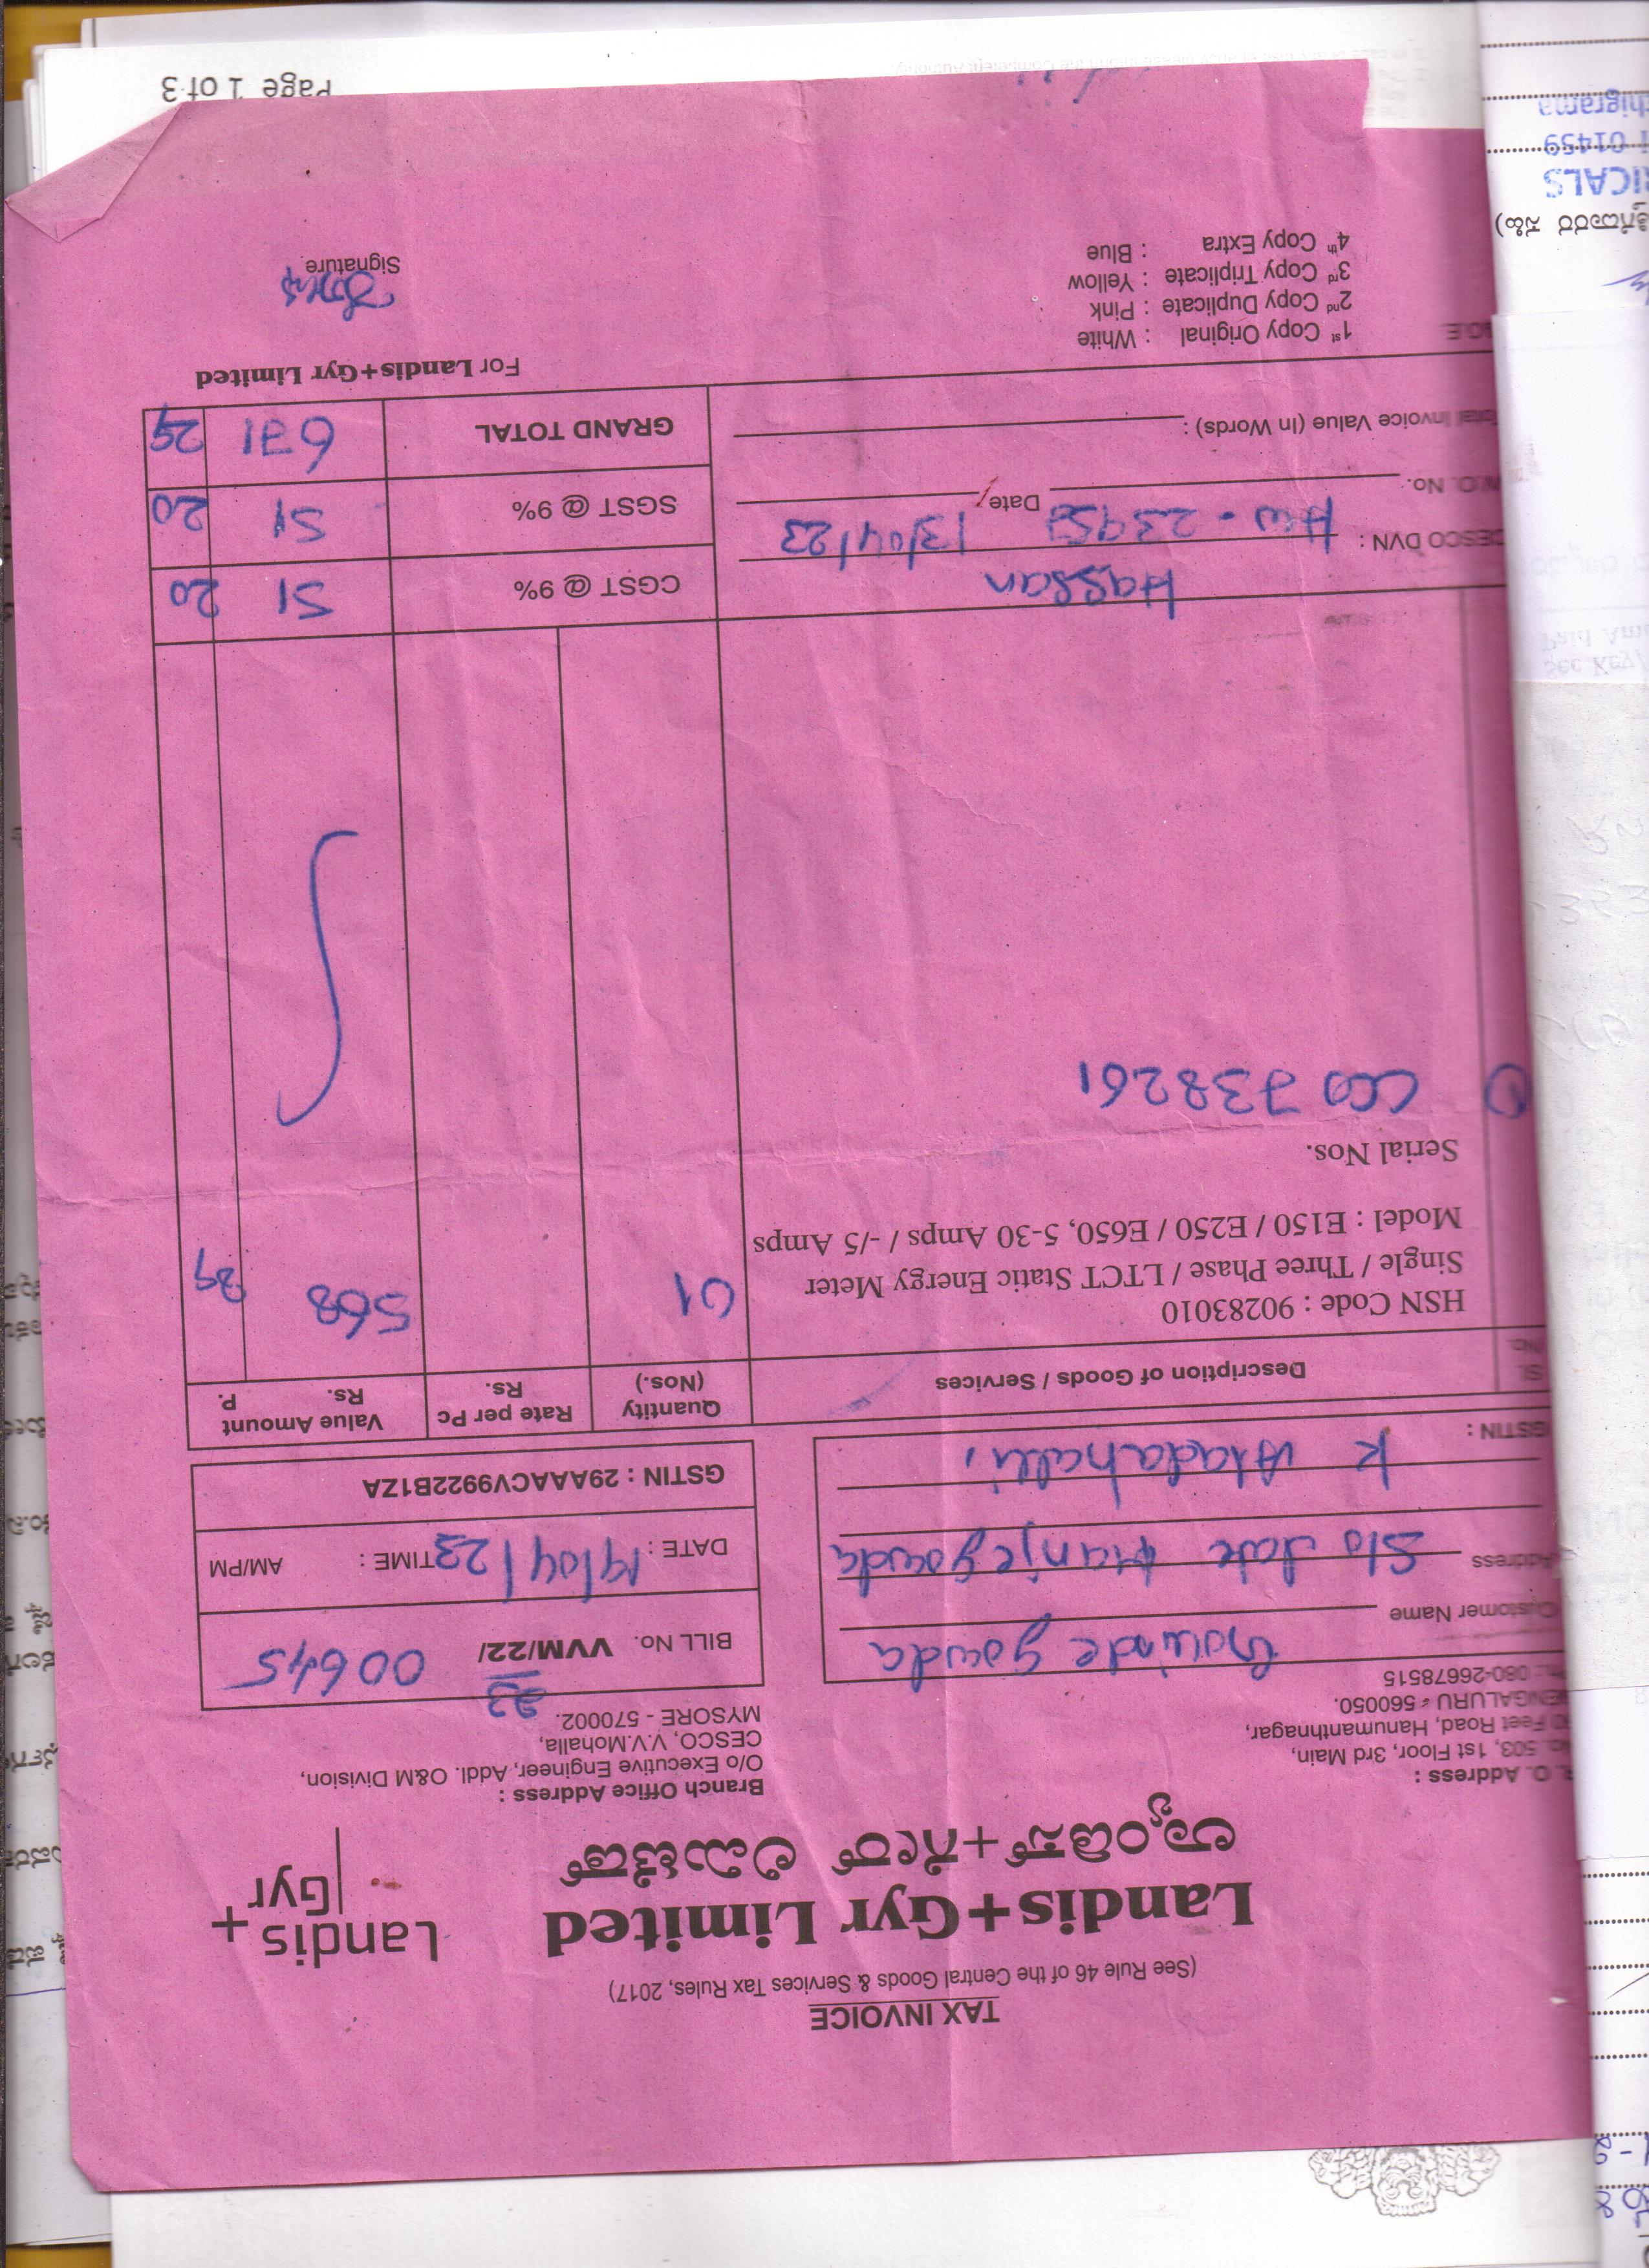 TAX INVOICE
(See Rule 46 of the Central Goods & Services Tax Rules, 2017)
Landis+Gyr Limited
ಲ್ಯಾಂಡಿಸ್+ಗೀರ್ ಲಿಮಿಟೆಡ್
Landis+
Gyr
R. O. Address :
No. 503, 1st Floor, 3rd Main,
Feet Road, Hanumanthnagar,
BENGALURU - 560050.
080-26678515
Branch Office Address :
O/o Executive Engineer, Addl. O&M Division,
CESCO, V.V.Mohalla,
MYSORE - 570002.
Customer Name
Gowinde gowda
Address S/o late Nanjegowda
K Aladahalli,
GSTIN :
BILL No. VVM/22/ 23 00645
DATE : 19/04/23 TIME : AM/PM
GSTIN : 29AAACV9922B1ZA
Sl. No. Description of Goods / Services Quantity (Nos.) Rate per Pc Rs. Value Amount Rs. P.
HSN Code : 90283010
Single / Three Phase / LTCT Static Energy Meter 01 568 89
Model : E150 / E250 / E650, 5-30 Amps / -/5 Amps
Serial Nos.
738261
Hassan
CESCO DVN :
W.O. No. Date
13/04/23
Total Invoice Value (In Words) :
CGST @ 9% 51 20
SGST @ 9% 51 20
GRAND TOTAL 671 29
For Landis+Gyr Limited
1st Copy Original : White
2nd Copy Duplicate : Pink
3rd Copy Triplicate : Yellow
4th Copy Extra : Blue
Signature
Page 1 of 3